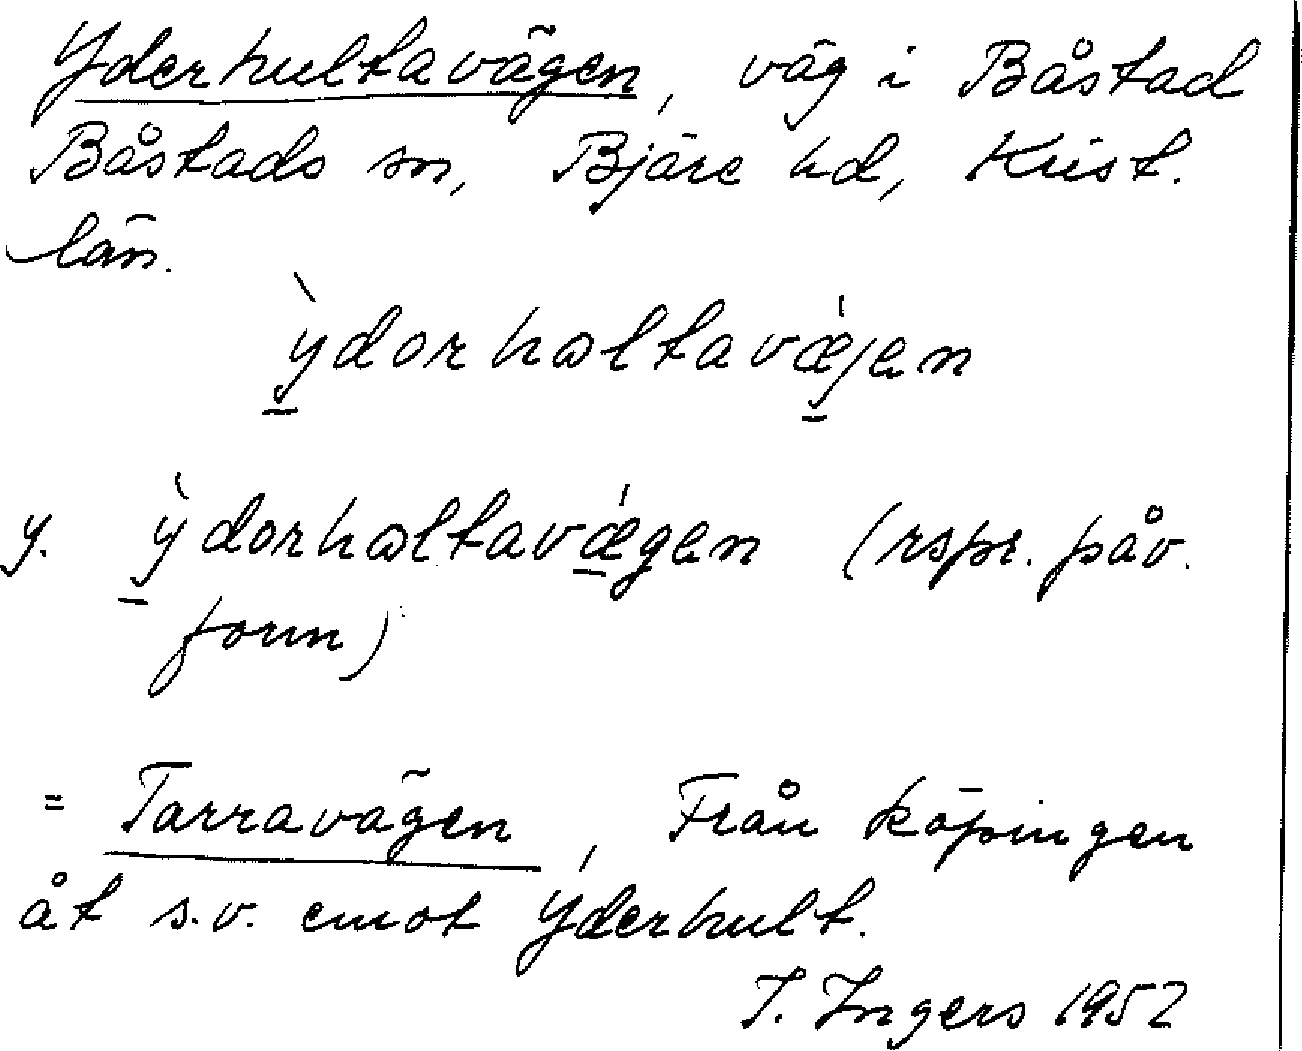 Yderhultavägen, väg i Båstad
Båstads sn, Bjäre hd, Krist.
län.
ỳdorhɷltavǽjen
y. ỳdorhɷltavǽgen (rspr. påv.
form)
= Tarravägen, Från köpingen
åt s.v. emot Yderhult.
I. Ingers 1952